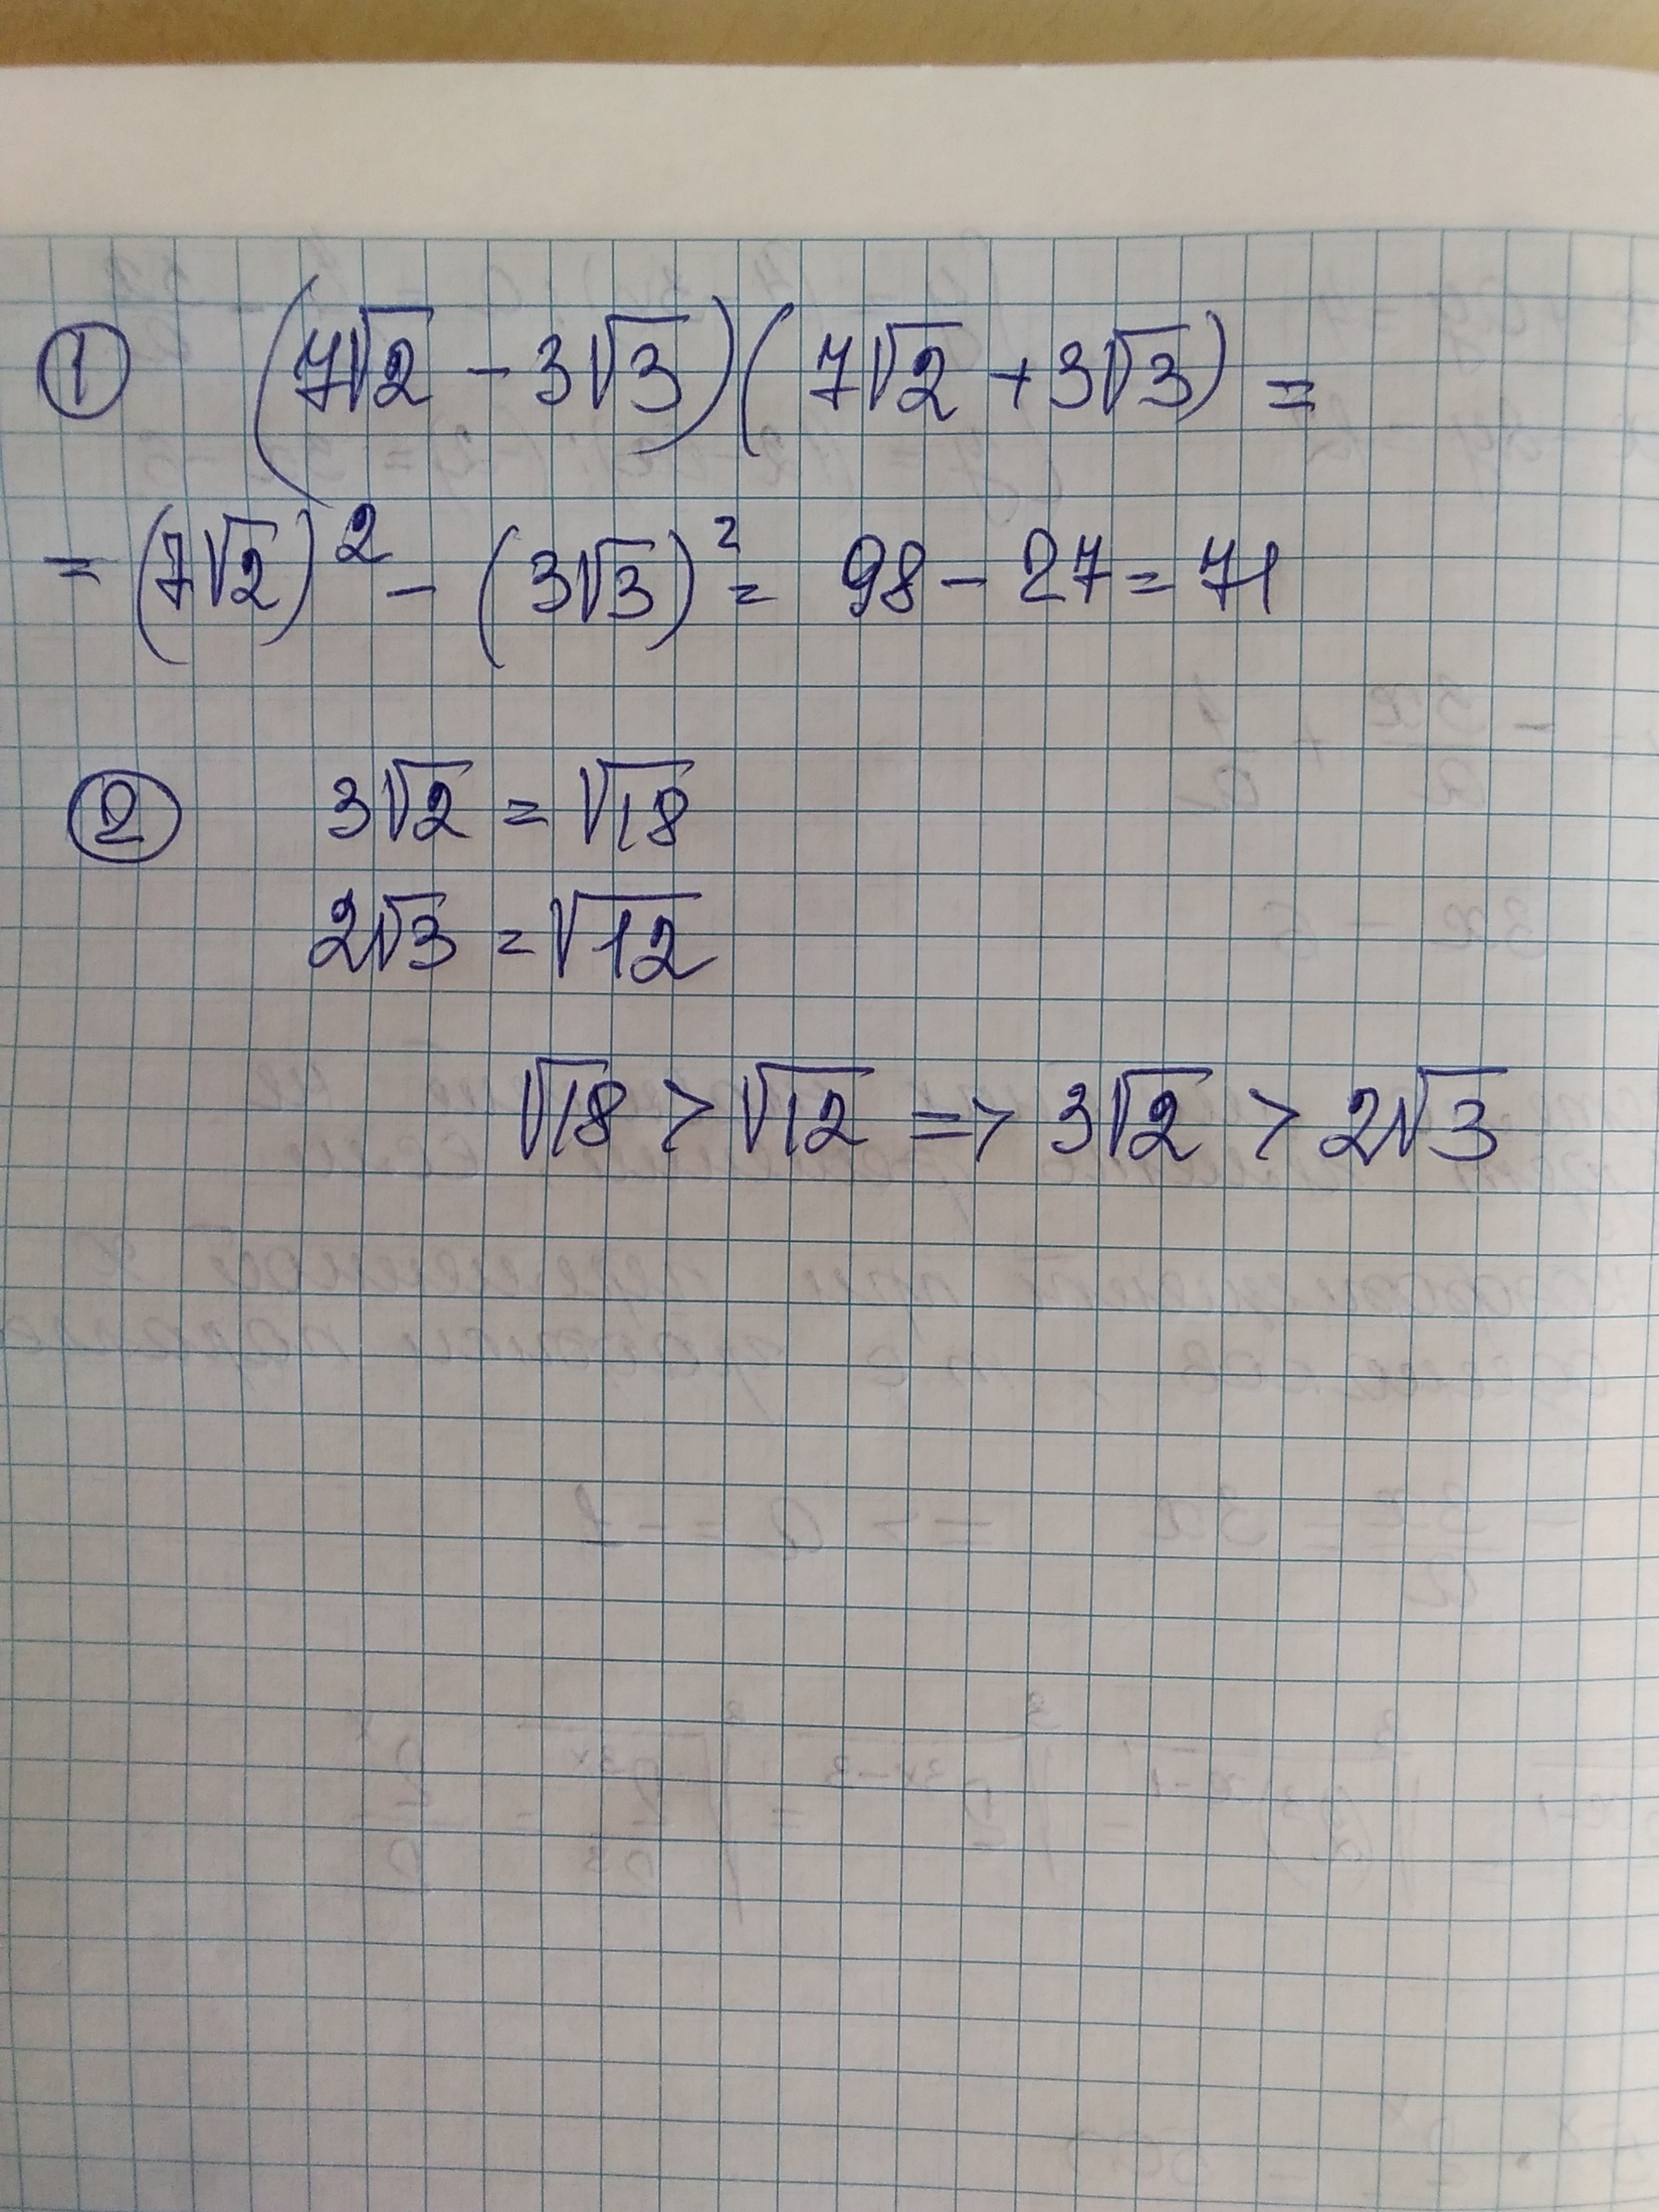 ① (7√2 - 3√3)(7√2 + 3√3) =
= (7√2)² - (3√3)² = 98 - 27 = 71
② 3√2 = √18
2√3 = √12
√18 > √12 => 3√2 > 2√3